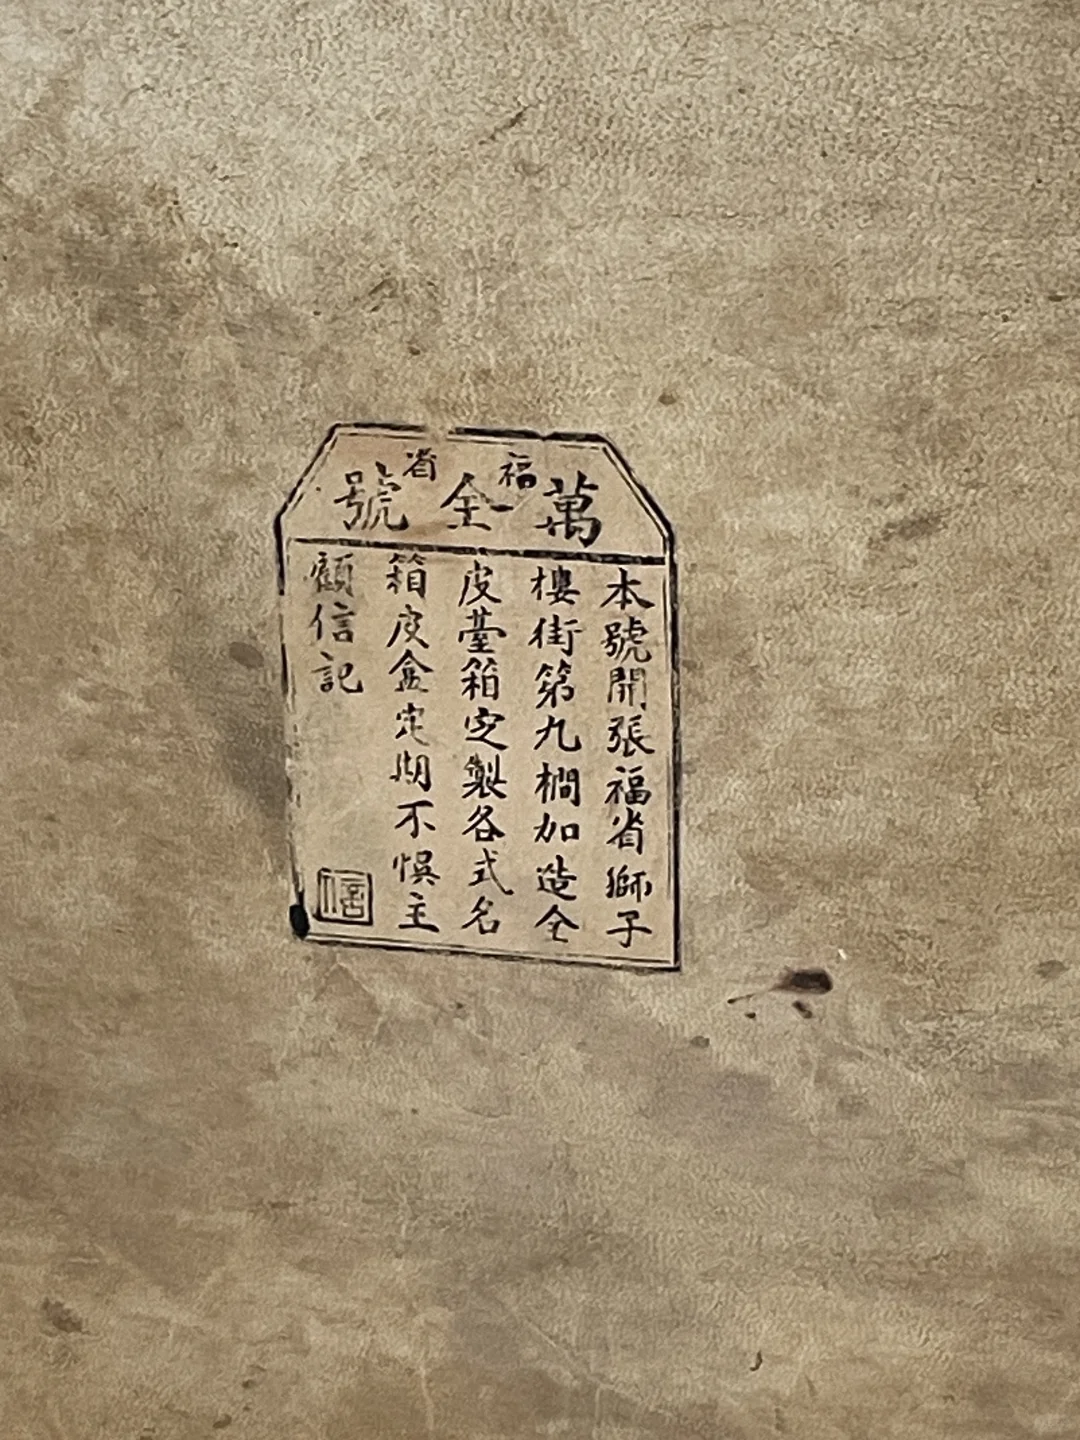 福省
萬全號
本號開張福省獅子
樓街第九橺加造全
皮臺箱定製各式名
箱皮盒定期不悞主
顧信記
信